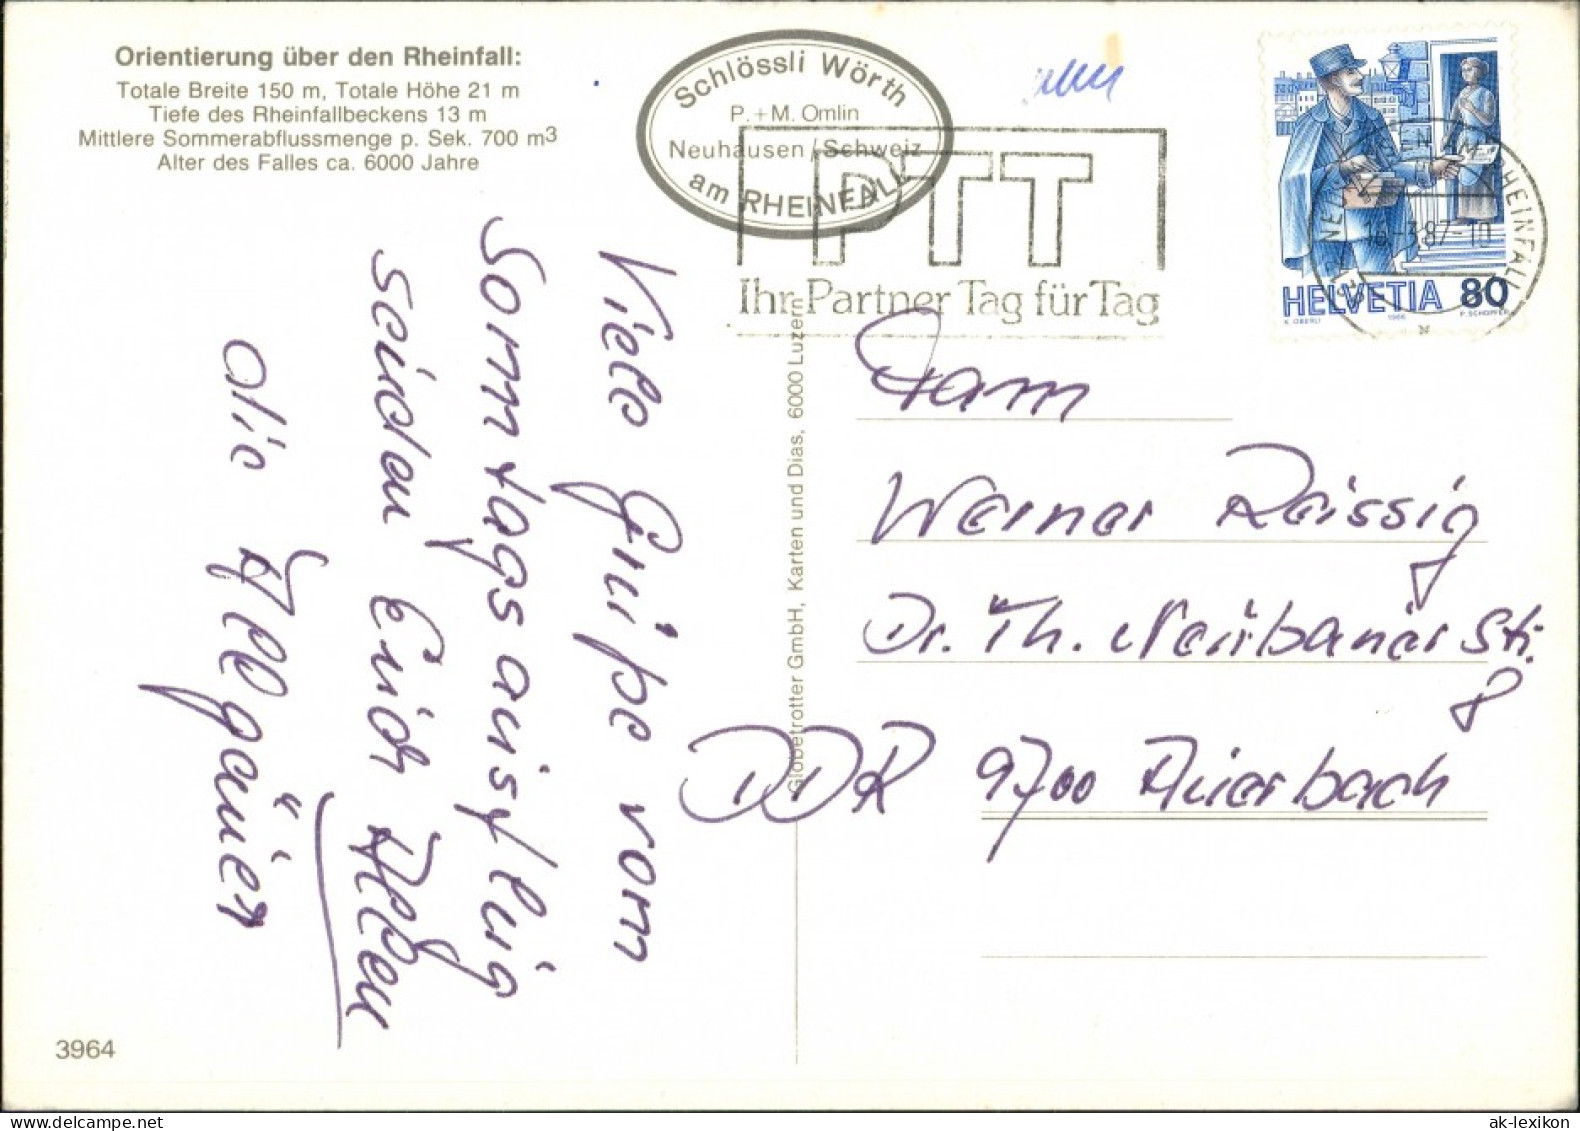 Orientierung über den Rheinfall:
Totale Breite 150 m, Totale Höhe 21 m
Tiefe des Rheinfallbeckens 13 m
Mittlere Sommerabflussmenge p. Sek. 700 m³
Alter des Falles ca. 6000 Jahre
Schlössli Wörth
P. + M. Omlin
Neuhausen / Schweiz
am RHEINFALL
PTT
Ihr Partner Tag für Tag
HELVETIA 80
K. OBERLI 1986 P. SCHOPFER
NEUHAUSEN AM RHEINFALL
16.-3.87-10
Viele Grüße vom
Sonntagsausflug
senden Euch Allen
die Allgäuer
Globetrotter GmbH, Karten und Dias, 6000 Luzern
Fam
Werner Reissig
Dr. Th. Neubauer Str.
8
DDR 9700 Auerbach
3964
ak-lexikon